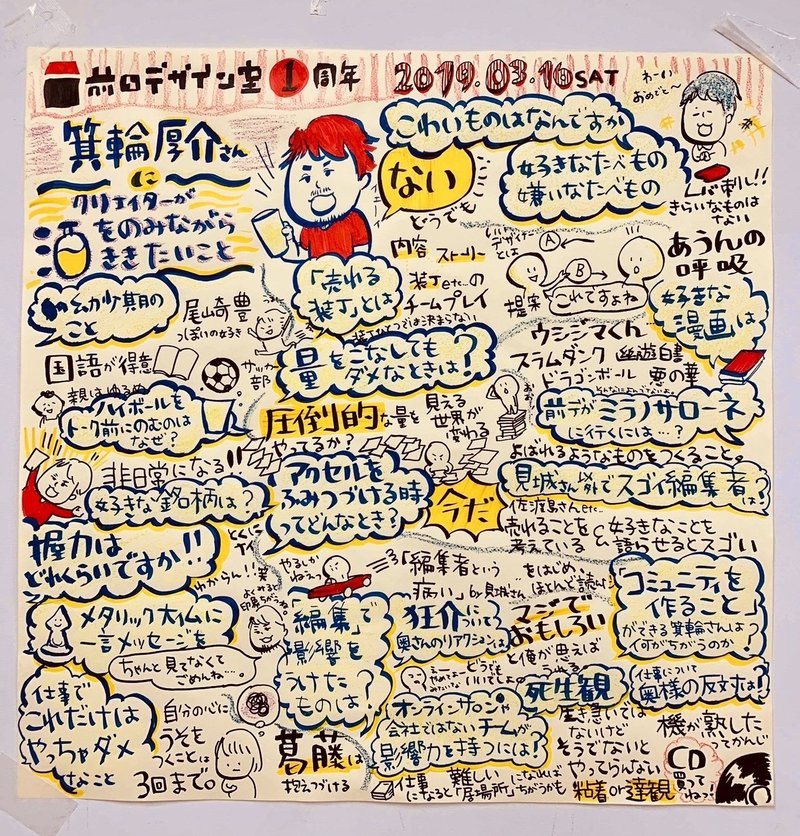 前田デザイン室 1 周年 2019.03.16 SAT
わーい
おめでと〜
箕輪厚介さん
に
クリエイターが
酒をのみながら
ききたいこと
こわいものはなんですか
ない
どうでも
好きなたべもの
嫌いなたべもの
レバ刺し!!
きらいなものは
ない
幼少期の
こと
尾崎豊
っぽいの好き
国語が得意
サッカー
部
親はゆるめ
「売れる
装丁」とは
内容 ストーリー
装丁etc...の
チームプレイ
装丁ひとつでは決まらない
いいデザイナー
とは
A
B
提案
これですよね
あうんの
呼吸
好きな
漫画は
ウシジマくん
スラムダンク 幽遊白書
ドラゴンボール 悪の華
量をこなしても
ダメなときは?
圧倒的な量を
やってるか?
見える
世界が
変わる
ハイボールを
トーク前にのむのは
なぜ?
非日常になる!!
前デがミラノサローネ
に行くには…?
よばれるようなものをつくること。
好きな銘柄は?
とくに
ナイ
アクセルを
ふみつづける時
ってどんなとき?
今だ
やるしか
ねぇっ
見城さん以外でスゴイ編集者は?
佐渡島さんetc...
売れることを
考えている
&
好きなことを
語らせるとスゴい
握力は
どれくらいですか!!
わからん!!笑
メタリック大仏に
一言メッセージを
ちゃんと見てなくて
ごめんね…。
「編集者という
病い」by見城さん
をはじめ、
ほとんど読んだ
「編集」で
影響を
うけた
ものは?
狂介について
奥さんのリアクションは
どうでも
いいでしょ
マジで
おもしろい
と俺が思えば
うれる
「コミュニティを
作ること」
ができる箕輪さんは
何がちがうのか?
仕事で
これだけは
やっちゃダメ
なこと
自分の心に
うそを
つくことは
3回まで。
葛藤は
抱えつづける
オンラインサロンや
会社ではないチームが
影響力を持つには!
仕事
になると
難しい
「居場所」
になれば
ちがうかも
死生観
生き急いでは
ないけど
そうでないと
やってらんない
粘着or達観
仕事について
奥様の反対は!
機が熟した
ってかんじ
CD
買って
ねっ!